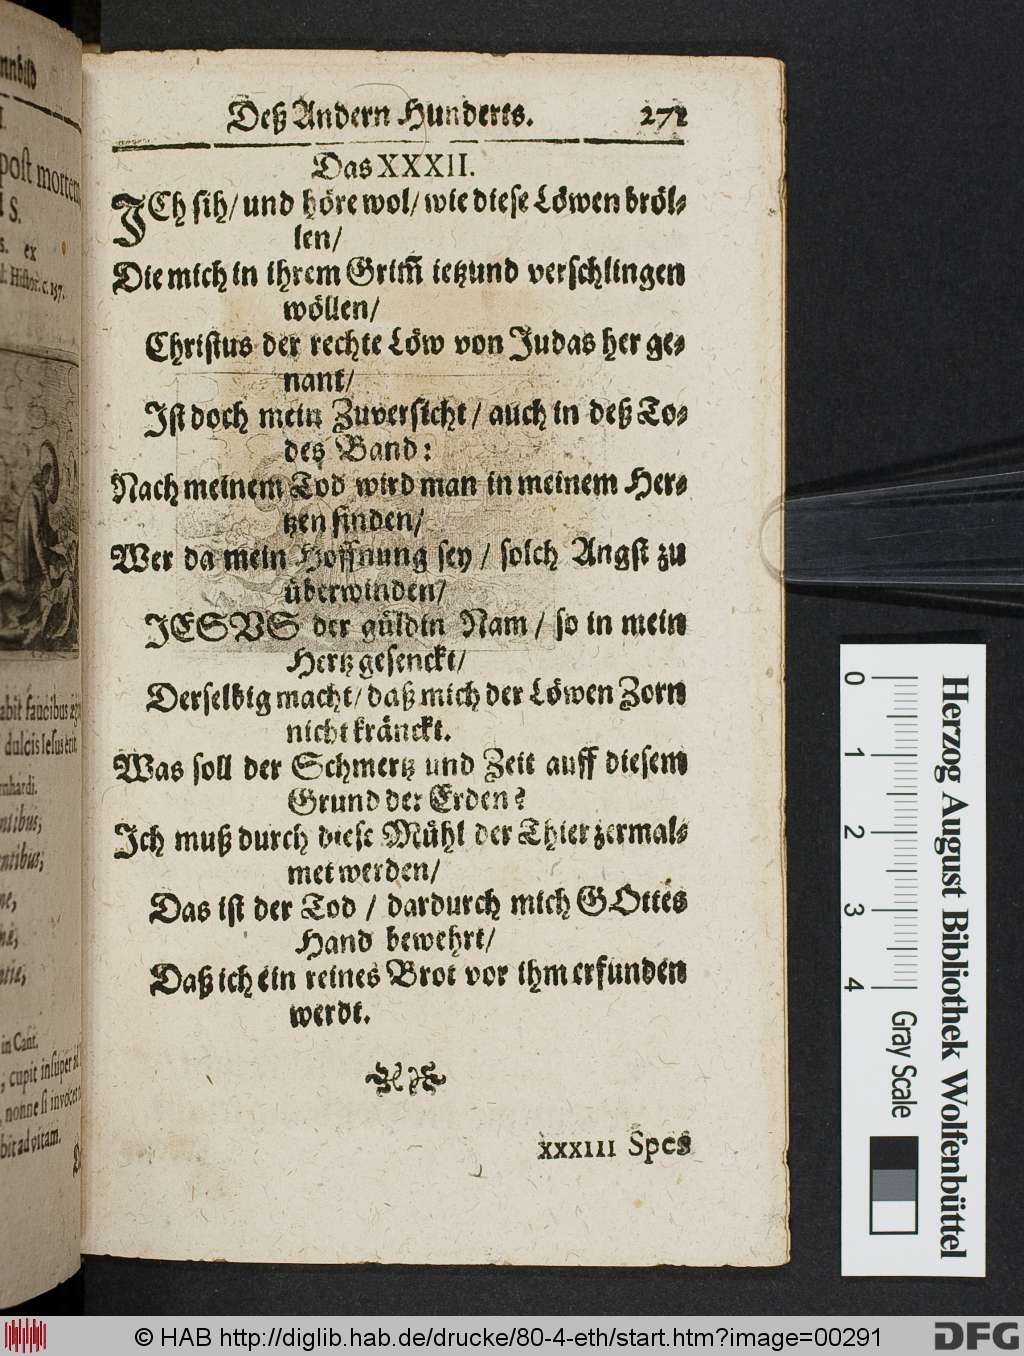 nnbild
I.
post mortem
S.
s. ex
Histor. c. 157.
Deß Andern Hunderts. 271
Das XXXII.
JCh sih / und höre wol / wie diese Löwen bröl-
len /
Die mich in ihrem Grim̃ ietzund verschlingen
wöllen /
Christus der rechte Löw von Judas her ge-
nant /
Ist doch mein Zuversicht / auch in deß To-
des Band:
Nach meinem Tod wird man in meinem Her-
tzen finden /
Wer da mein Hoffnung sey / solch Angst zu
überwinden /
JESVS der güldin Nam / so in mein
Hertz gesenckt /
Derselbig macht / daß mich der Löwen Zorn
nicht kränckt.
Was soll der Schmertz und Zeit auff diesem
Grund der Erden?
Ich muß durch diese Mühl der Thier zermal-
met werden /
Das ist der Tod / dardurch mich GOttes
Hand bewehrt /
Daß ich ein reines Brot vor ihm erfunden
werdt.
XXXIII Spes
abit faucibus
dulcis Iesus erit
nhardi.
ntibus,
entibus;
ne,
in Cant.
, cupit insuper
, nonne si invocet
bit ad vitam.
0 1 2 3 4
Gray Scale
Herzog August Bibliothek Wolfenbüttel
© HAB http://diglib.hab.de/drucke/80-4-eth/start.htm?image=00291
DFG